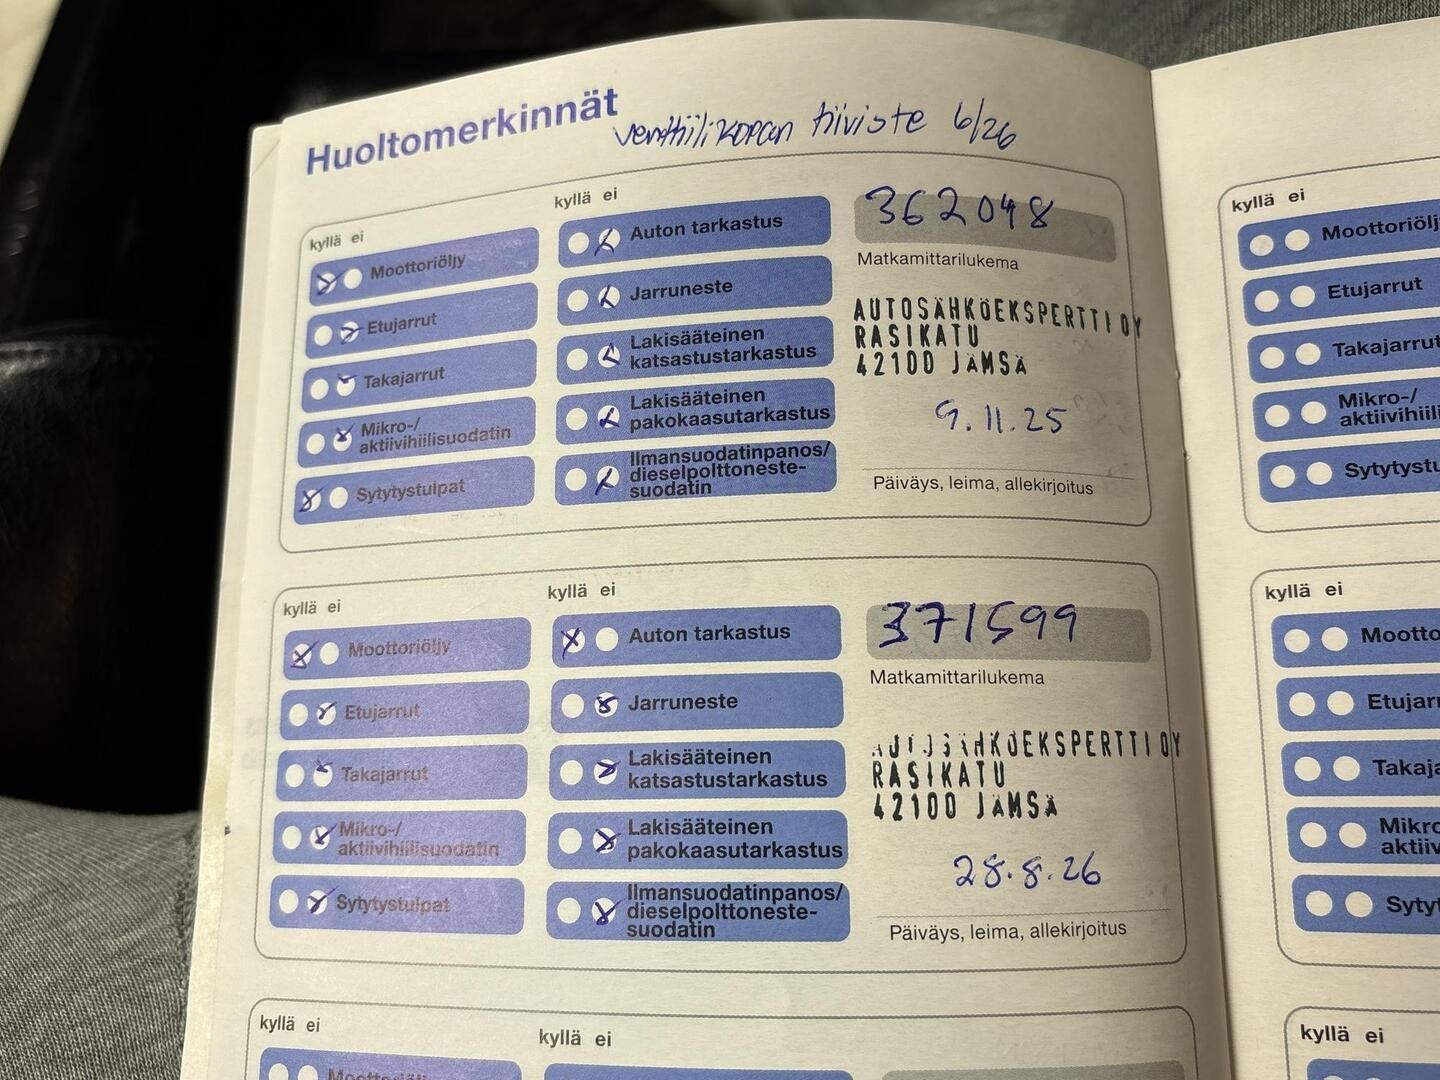 Huoltomerkinnät
venttiilikopan tiiviste 6/26
kyllä ei
Moottoriöljy
Etujarrut
Takajarrut
Mikro-/
aktiivihiilisuodatin
Sytytystulpat
kyllä ei
Auton tarkastus
Jarruneste
Lakisääteinen
katsastustarkastus
Lakisääteinen
pakokaasutarkastus
Ilmansuodatinpanos/
dieselpolttoneste-
suodatin
362048
Matkamittarilukema
AUTOSÄHKÖEKSPERTTI OY
RASIKATU
42100 JÄMSÄ
9.11.25
Päiväys, leima, allekirjoitus
kyllä ei
Moottoriöljy
Etujarrut
Takajarrut
Mikro-/
aktiivihiilisuodatin
Sytytystulpat
kyllä ei
Auton tarkastus
Jarruneste
Lakisääteinen
katsastustarkastus
Lakisääteinen
pakokaasutarkastus
Ilmansuodatinpanos/
dieselpolttoneste-
suodatin
371599
Matkamittarilukema
AUTOSÄHKÖEKSPERTTI OY
RASIKATU
42100 JÄMSÄ
28.8.26
Päiväys, leima, allekirjoitus
kyllä ei
kyllä ei
kyllä ei
Moottoriölj
Etujarrut
Takajarrut
Mikro-/
aktiivihiili
Sytytystu
kyllä ei
Mootto
Etujarr
Takaja
Mikro
aktiiv
Syty
kyllä ei